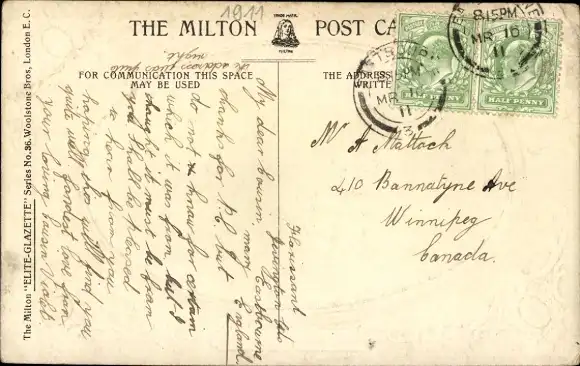 1911
THE MILTON POST CA
TRADE MARK
MILTON
FOR COMMUNICATION THIS SPACE
MAY BE USED
THE ADDRESS
WRITTE
8.15PM
MR 16
11
EASTBOURNE
15PM
MR 16
11
HALF PENNY
HALF PENNY
The Milton "ELITE-GLAZETTE" Series No. 36. Woolstone Bros, London E.C.
the address was quite
right
Mr A Mattock
410 Bannatyne Ave
Winnipeg
Canada.
Florissant
Eastbourne
England.
My dear cousin, many
thanks for P.C. but
do not know for certain
which it was from but I
thought it must be from
you shall be pleased
to hear from you
hoping this will find you
quite well fondest love from
your loving cousin Violet